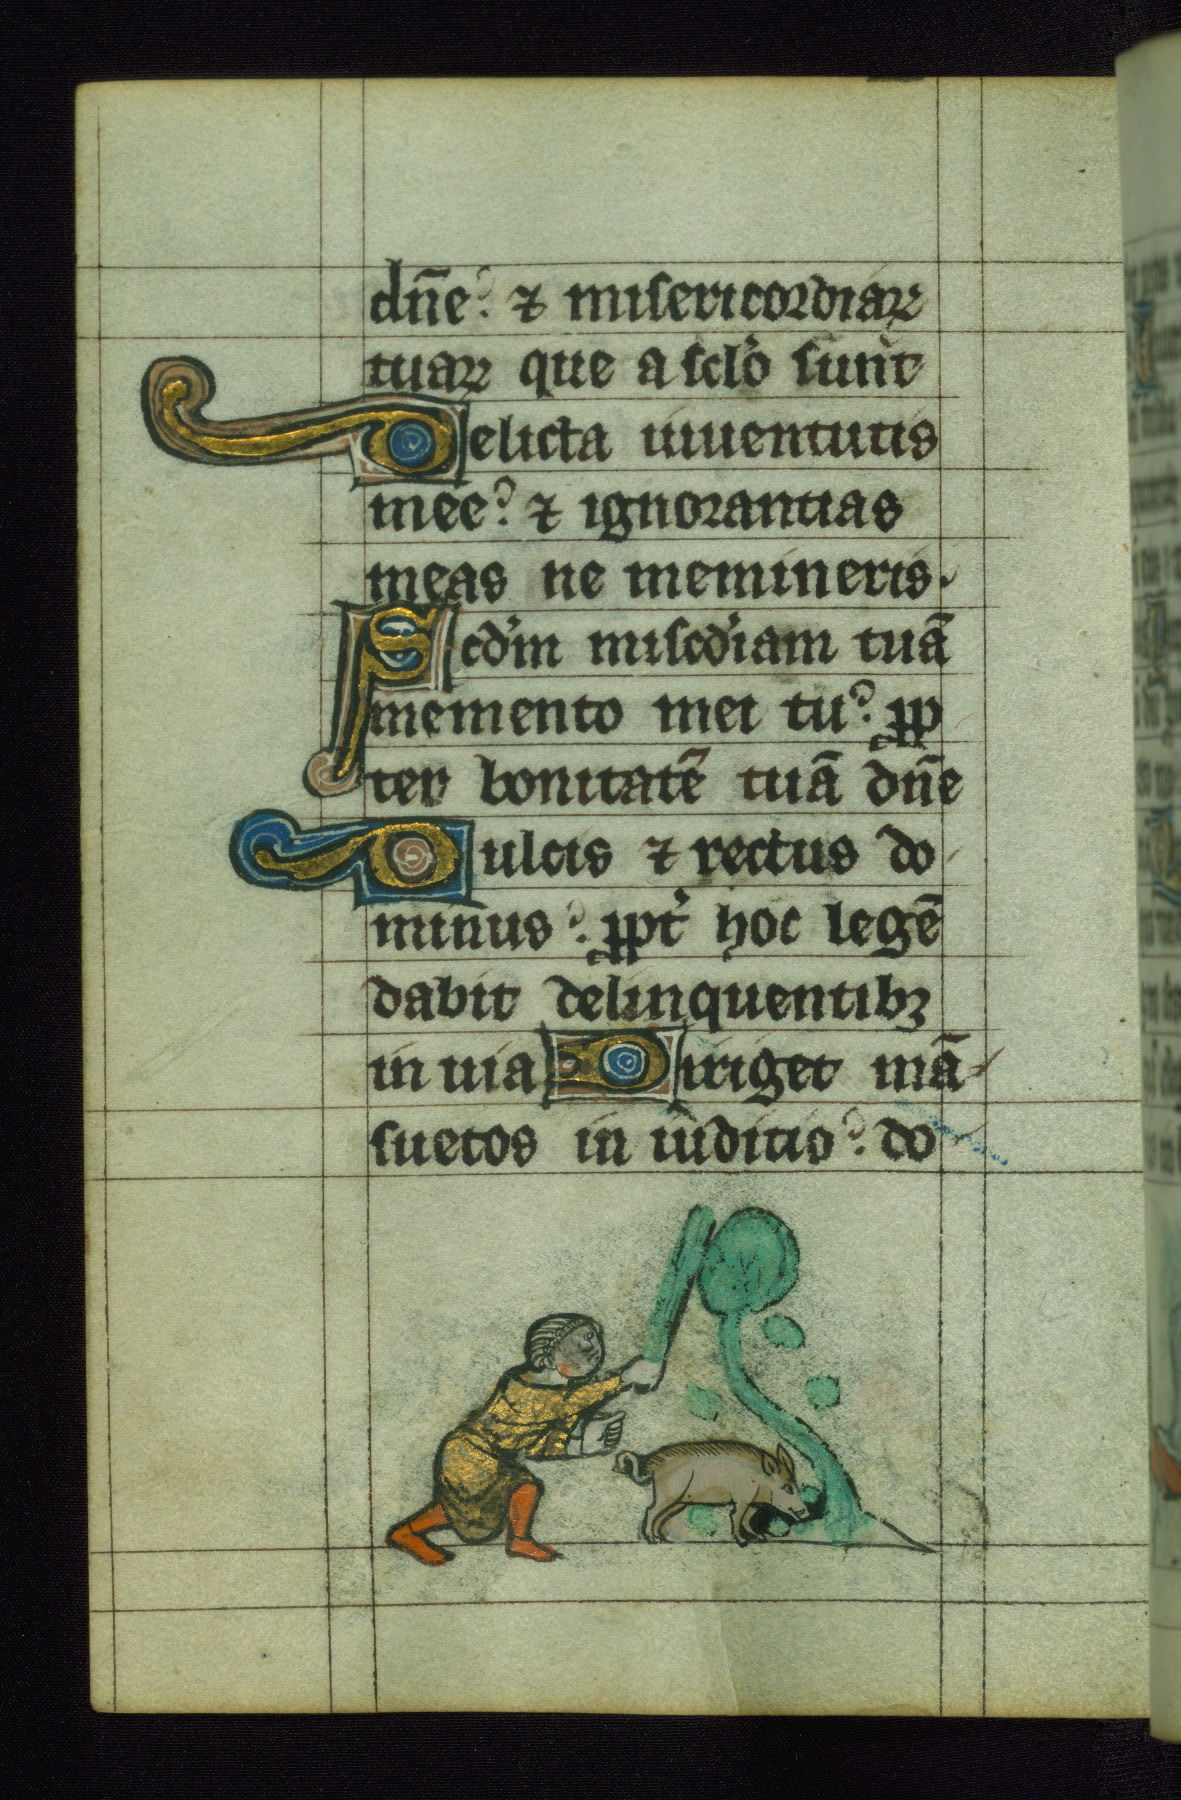 dn̄e? ⁊ misericordiaꝝ
tuaꝝ que a sc̄lo sunt
Delicta iuuentutis
mee? ⁊ ignorantias
meas ne memineris.
Scdm̄ misc̄diam tuā
memento mei tu? ꝓp
ter bonitatē tuā dn̄e
Dulcis ⁊ rectus do
minus? ꝓpt̄ hoc legē
dabit delinquentibꝫ
in uia Diriget mā
suetos in iuditio? do